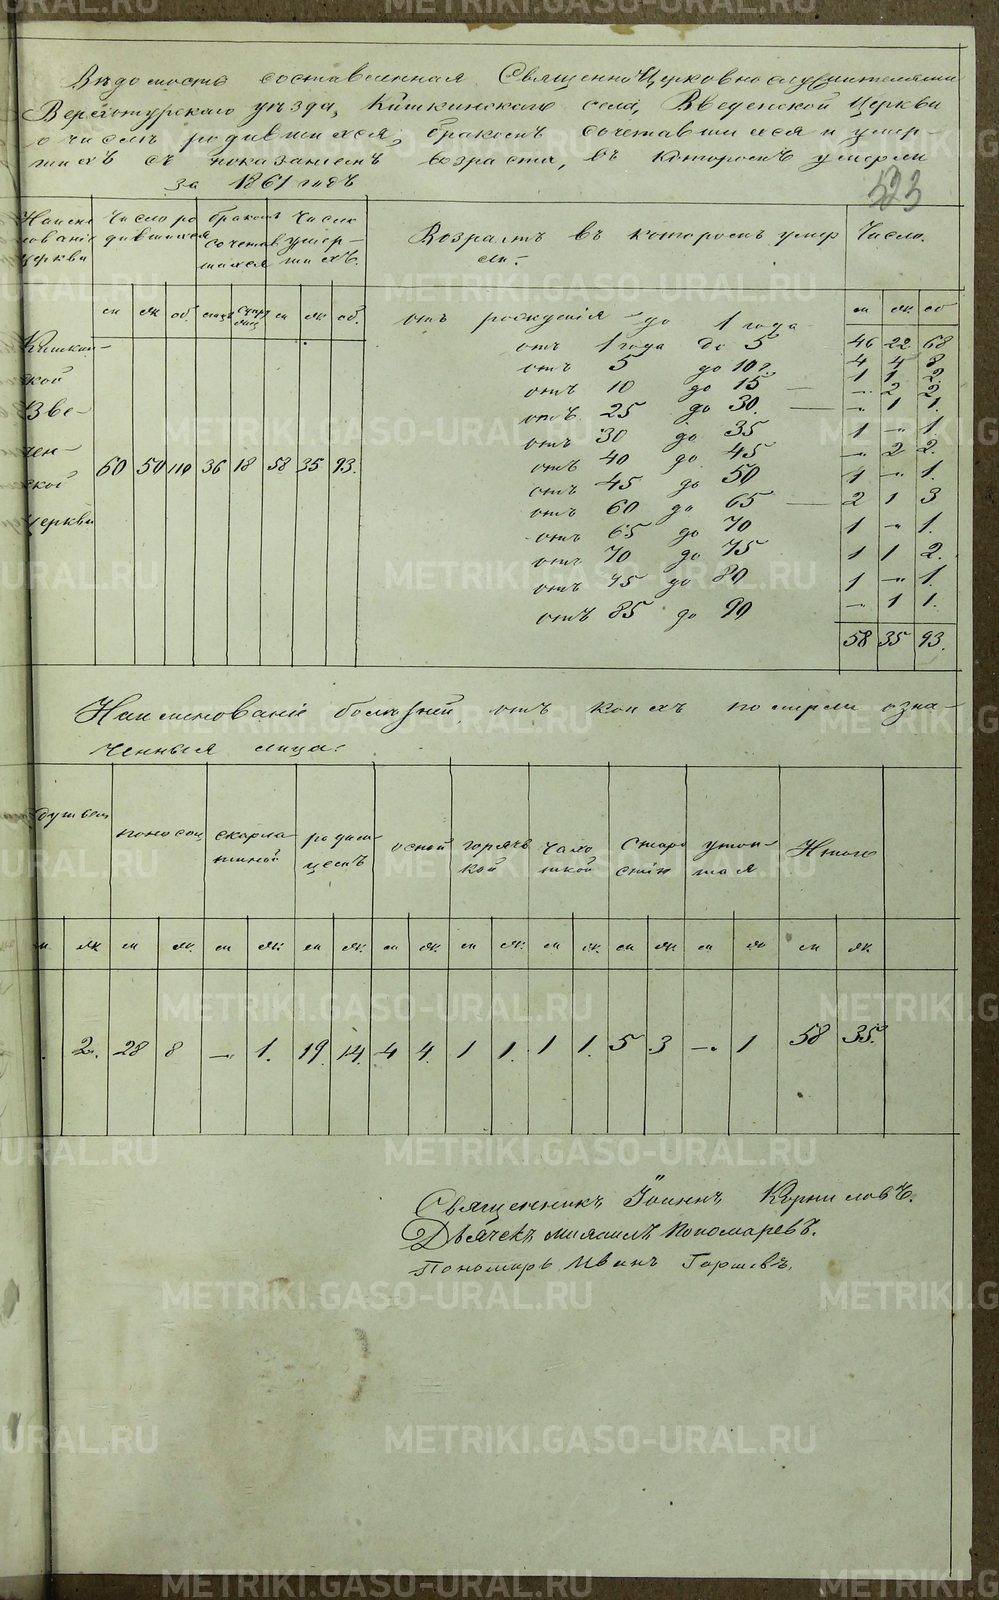 Вѣдомость составленная Священно Церковнослужителями
Верхотурскаго уѣзда, Кишкинскаго села, Введенской Церкви
о числѣ родившихся, бракомъ сочетавшихся и умер-
шихъ съ показаніемъ возраста, въ которомъ умерли
за 1861 годъ
523
Наиме нованіе церкви | Число ро дившихся | бракомъ сочетав шихся | Число умер- шихъ. | Возрастъ въ которомъ умер ли- | Число.
м | ж | об. | м | ж | об. | м | ж | об
Кишкин-
ской
Вве-
ден-
ской
церкви
60 | 50 | 110 | 36 | 18 | 58 | 35 | 93.
отъ рожденія до 1 года | 46 | 22 | 68
отъ 1 года до 5 | 4 | 4 | 8
отъ 5 до 10 г. | 1 | 1 | 2.
отъ 10 до 15 — | -„ | 2 | 2
отъ 25 до 30. — | -„ | 1 | 1.
отъ 30 до 35 | 1 | -„ | 1.
отъ 40 до 45 | -„ | 2 | 2.
отъ 45 до 50 | 1 | -„ | 1.
отъ 60 до 65 — | 2 | 1 | 3
отъ 65 до 70 | 1 | -„ | 1.
отъ 70 до 75 | 1 | 1 | 2.
отъ 75 до 80 | 1 | -„ | 1.
отъ 85 до 90 | -„ | 1 | 1.
58 | 35 | 93.
Наименованіе болѣзней, отъ коихъ померли озна-
ченныя лица:
поносом | скарла- тиной | родим- цемъ | оспой | горяч кой | чахо ткой | Старо стію | утоп- шая | Итого
м | ж | м | ж | м | ж | м | ж | м | ж | м | ж | м | ж | м | ж | м | ж | м | ж
2. | 28 | 8 | -„ | 1. | 19. | 14. | 4 | 4. | 1 | 1. | 1 | 1. | 5 | 3 | -„ | 1 | 58 | 35.
Священникъ Іоаннъ Корниловъ.
Дьячекъ Пономаревъ.
Пономарь Иванъ
METRIKI.GASO-URAL.RU